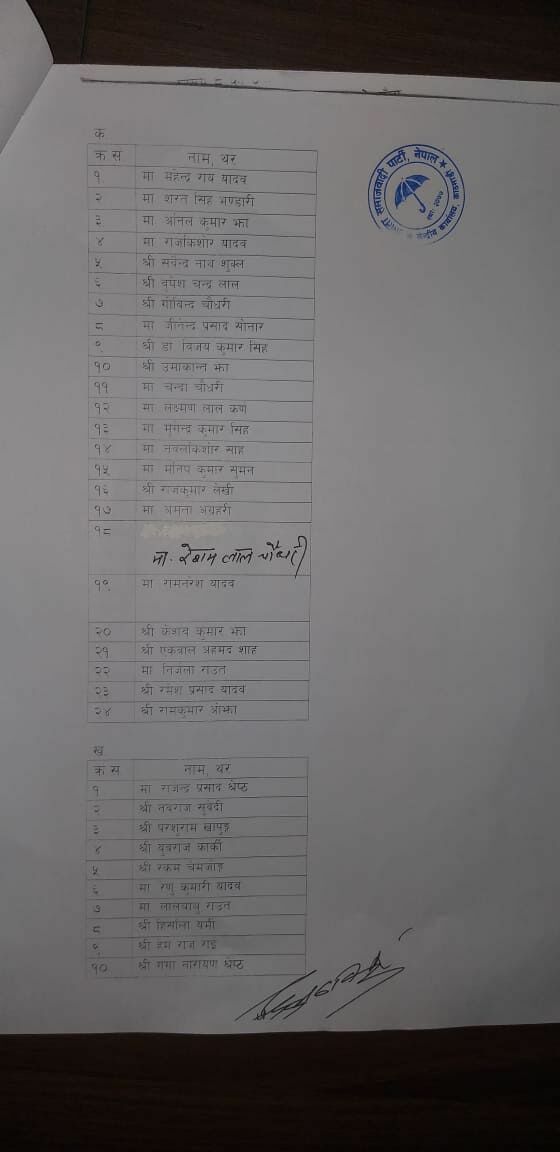 क
क्र स नाम, थर
१ मा महेन्द्र राय यादव
२ मा शरत सिंह भण्डारी
३ मा. अनिल कुमार झा
४ मा राजकिशोर यादव
५ श्री सर्वेन्द्र नाथ शुक्ल
६ श्री वृषेश चन्द्र लाल
७ श्री गोविन्द चौधरी
८ मा जीतेन्द्र प्रसाद सोनार
९ श्री डा विजय कुमार सिंह
१० श्री उमाकान्त झा
११ मा चन्दा चौधरी
१२ मा लक्ष्मण लाल कर्ण
१३ मा मृगेन्द्र कुमार सिंह
१४ मा नवलकिशोर साह
१५ मा प्रदिप कुमार सुमन
१६ श्री राजकुमार लेखी
१७ मा अमृता अग्रहरी
१८
मा. रेशम लाल चौधरी
१९ मा रामनरेश यादव
२० श्री केशव कुमार झा
२१ श्री एकबाल अहमद शाह
२२ मा निर्जला राउत
२३ श्री रमेश प्रसाद यादव
२४ श्री रामकुमार ओझा
ख
क्र स नाम, थर
१ मा राजेन्द्र प्रसाद श्रेष्ठ
२ श्री नवराज सुवेदी
३ श्री परशुराम खापुङ्ग
४ श्री युवराज कार्की
५ श्री रकम चेमजोङ
६ मा रेणु कुमारी यादव
७ मा लालबाबु राउत
८ श्री हिसिला यमी
९ श्री हेम राज राई
१० श्री गंगा नारायण श्रेष्ठ
समाजवादी पार्टी, नेपाल
केन्द्रीय कार्यालय,